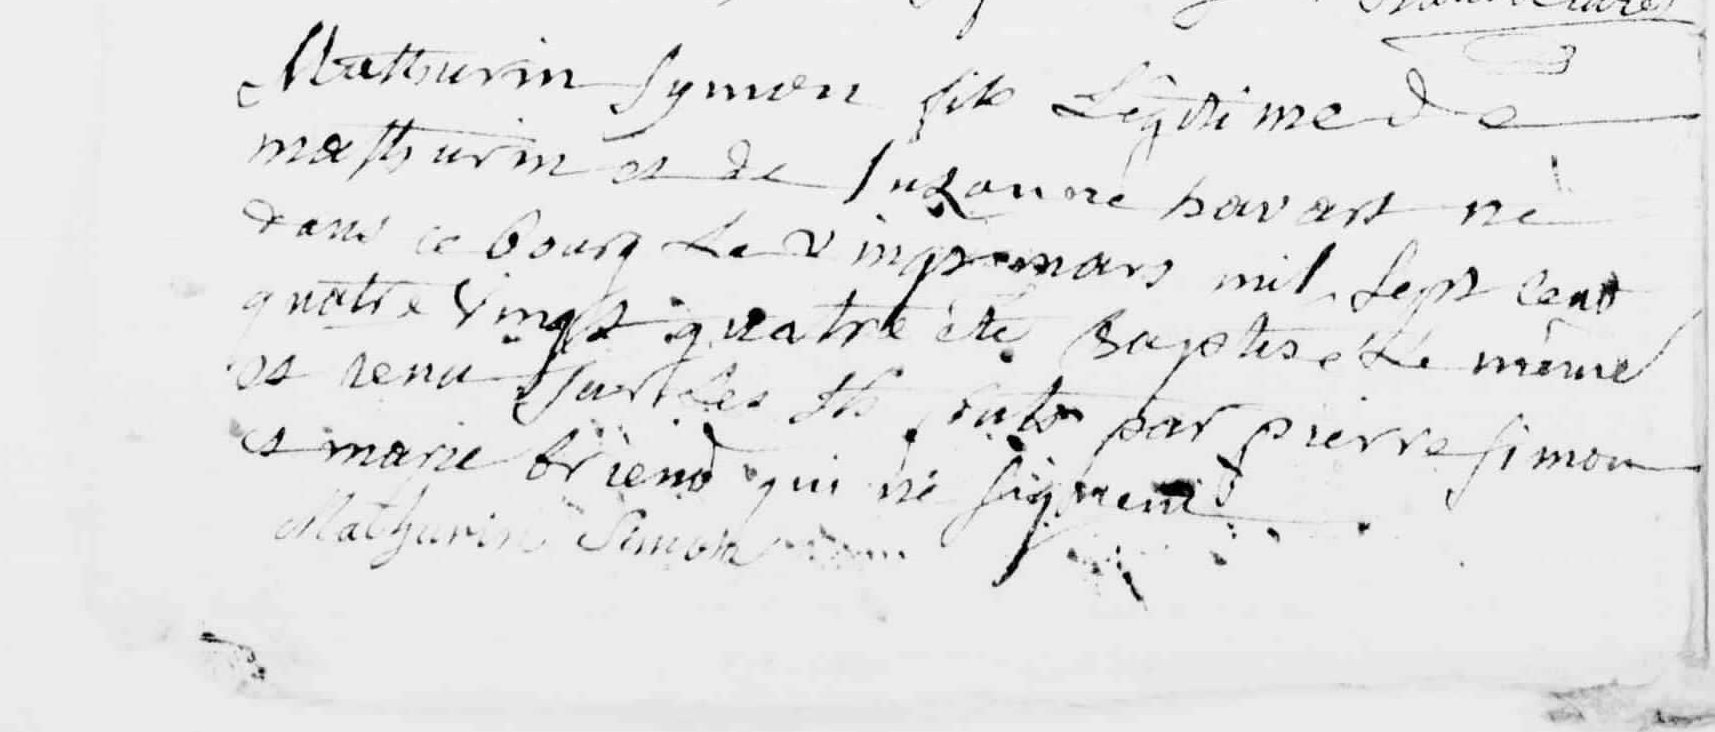 Mathurin Symon fils Légitime de
mathurin et de Suzanne havart né
dans ce bourg Le vingt mars mil sept cent
quatre vingt quatre été Baptisé Le même
et tenu sur Les fonts par pierre simon
et marie briend qui ne signent
Mathurin Simon